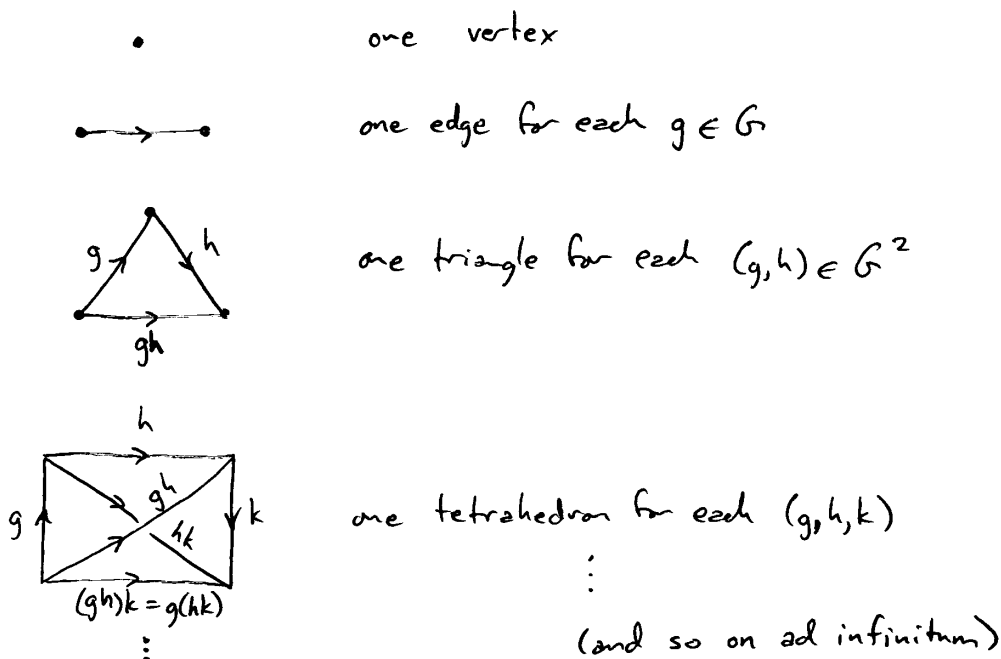 one vertex
one edge for each g ∈ G
g h
gh
one triangle for each (g,h) ∈ G²
h
g gh hk k
(gh)k = g(hk)
one tetrahedron for each (g,h,k)
⋮
⋮
(and so on ad infinitum)